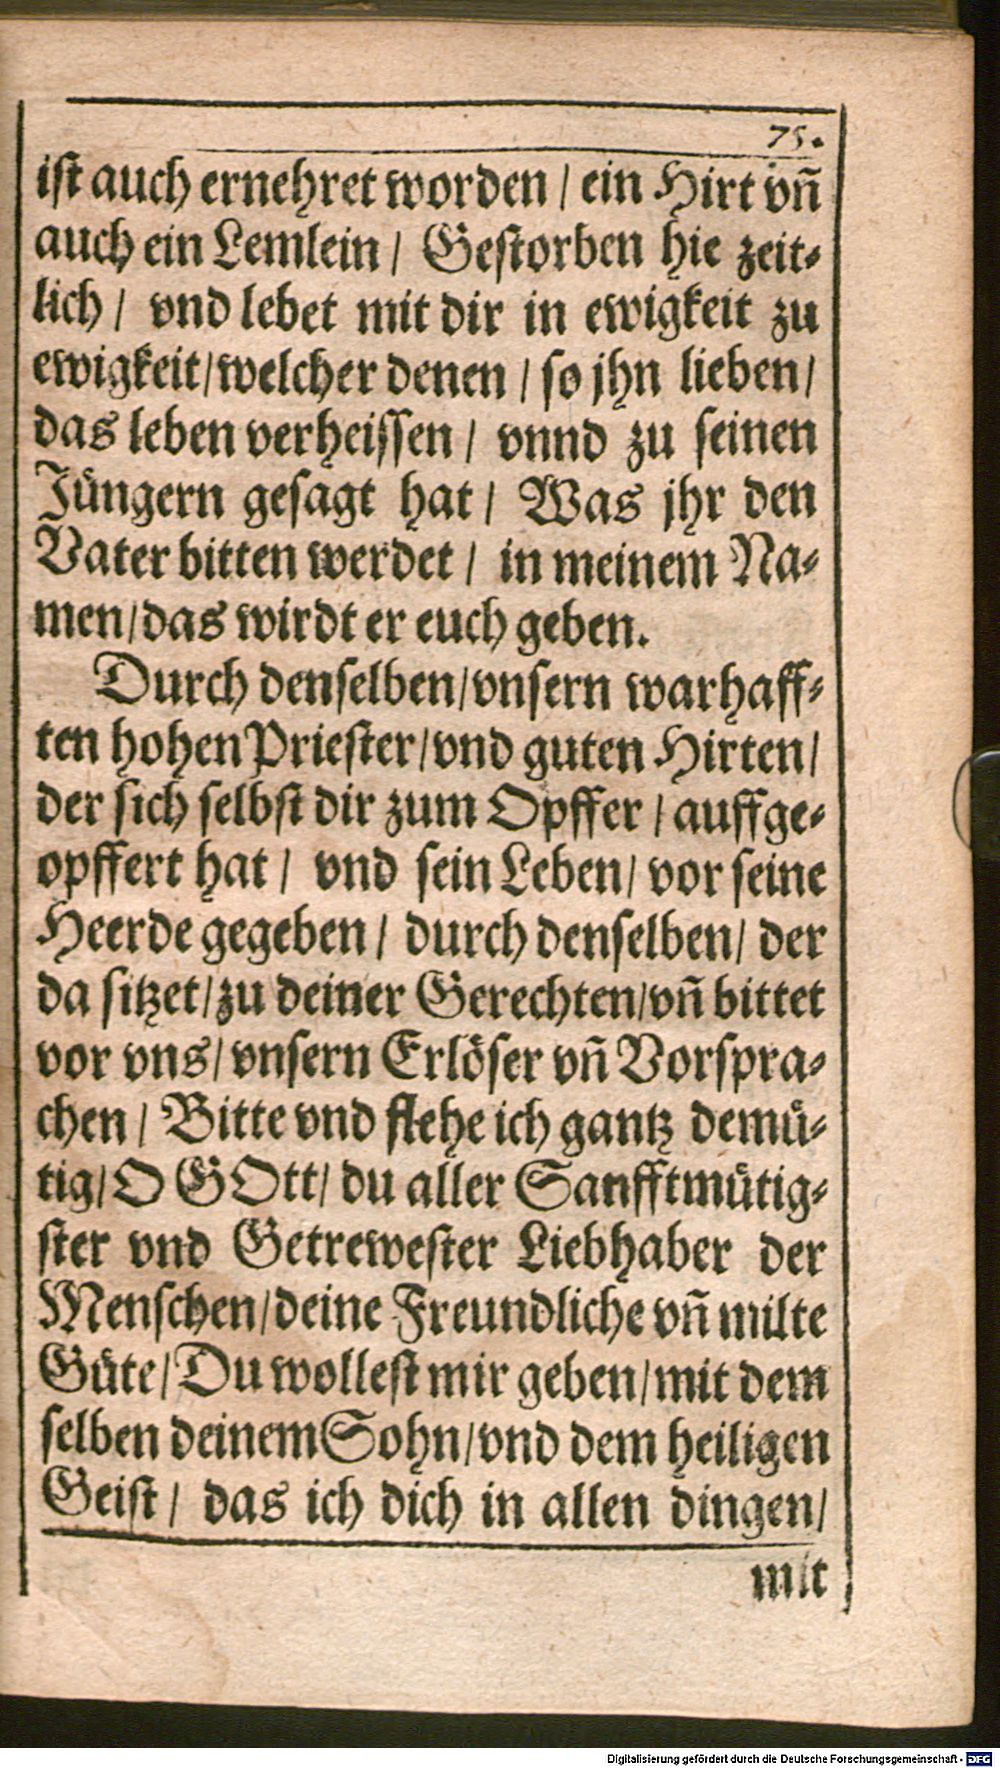 75.
ist auch ernehret worden / ein Hirt vñ
auch ein Lemlein / Gestorben hie zeit-
lich / vnd lebet mit dir in ewigkeit zu
ewigkeit / welcher denen / so jhn lieben /
das leben verheissen / vnnd zu seinen
Jüngern gesagt hat / Was jhr den
Vater bitten werdet / in meinem Na-
men / das wirdt er euch geben.
Durch denselben / vnsern warhaff-
ten hohen Priester / vnd guten Hirten /
der sich selbst dir zum Opffer / auffge-
opffert hat / vnd sein Leben / vor seine
Heerde gegeben / durch denselben / der
da sitzet / zu deiner Gerechten / vñ bittet
vor vns / vnsern Erlöser vñ Vorspra-
chen / Bitte vnd flehe ich gantz demü-
tig / O GOtt / du aller Sanfftmütig-
ster vnd Getrewester Liebhaber der
Menschen / deine Freundliche vñ milte
Güte / Du wollest mir geben / mit dem
selben deinem Sohn / vnd dem heiligen
Geist / das ich dich in allen dingen /
mit
Digitalisierung gefördert durch die Deutsche Forschungsgemeinschaft - DFG